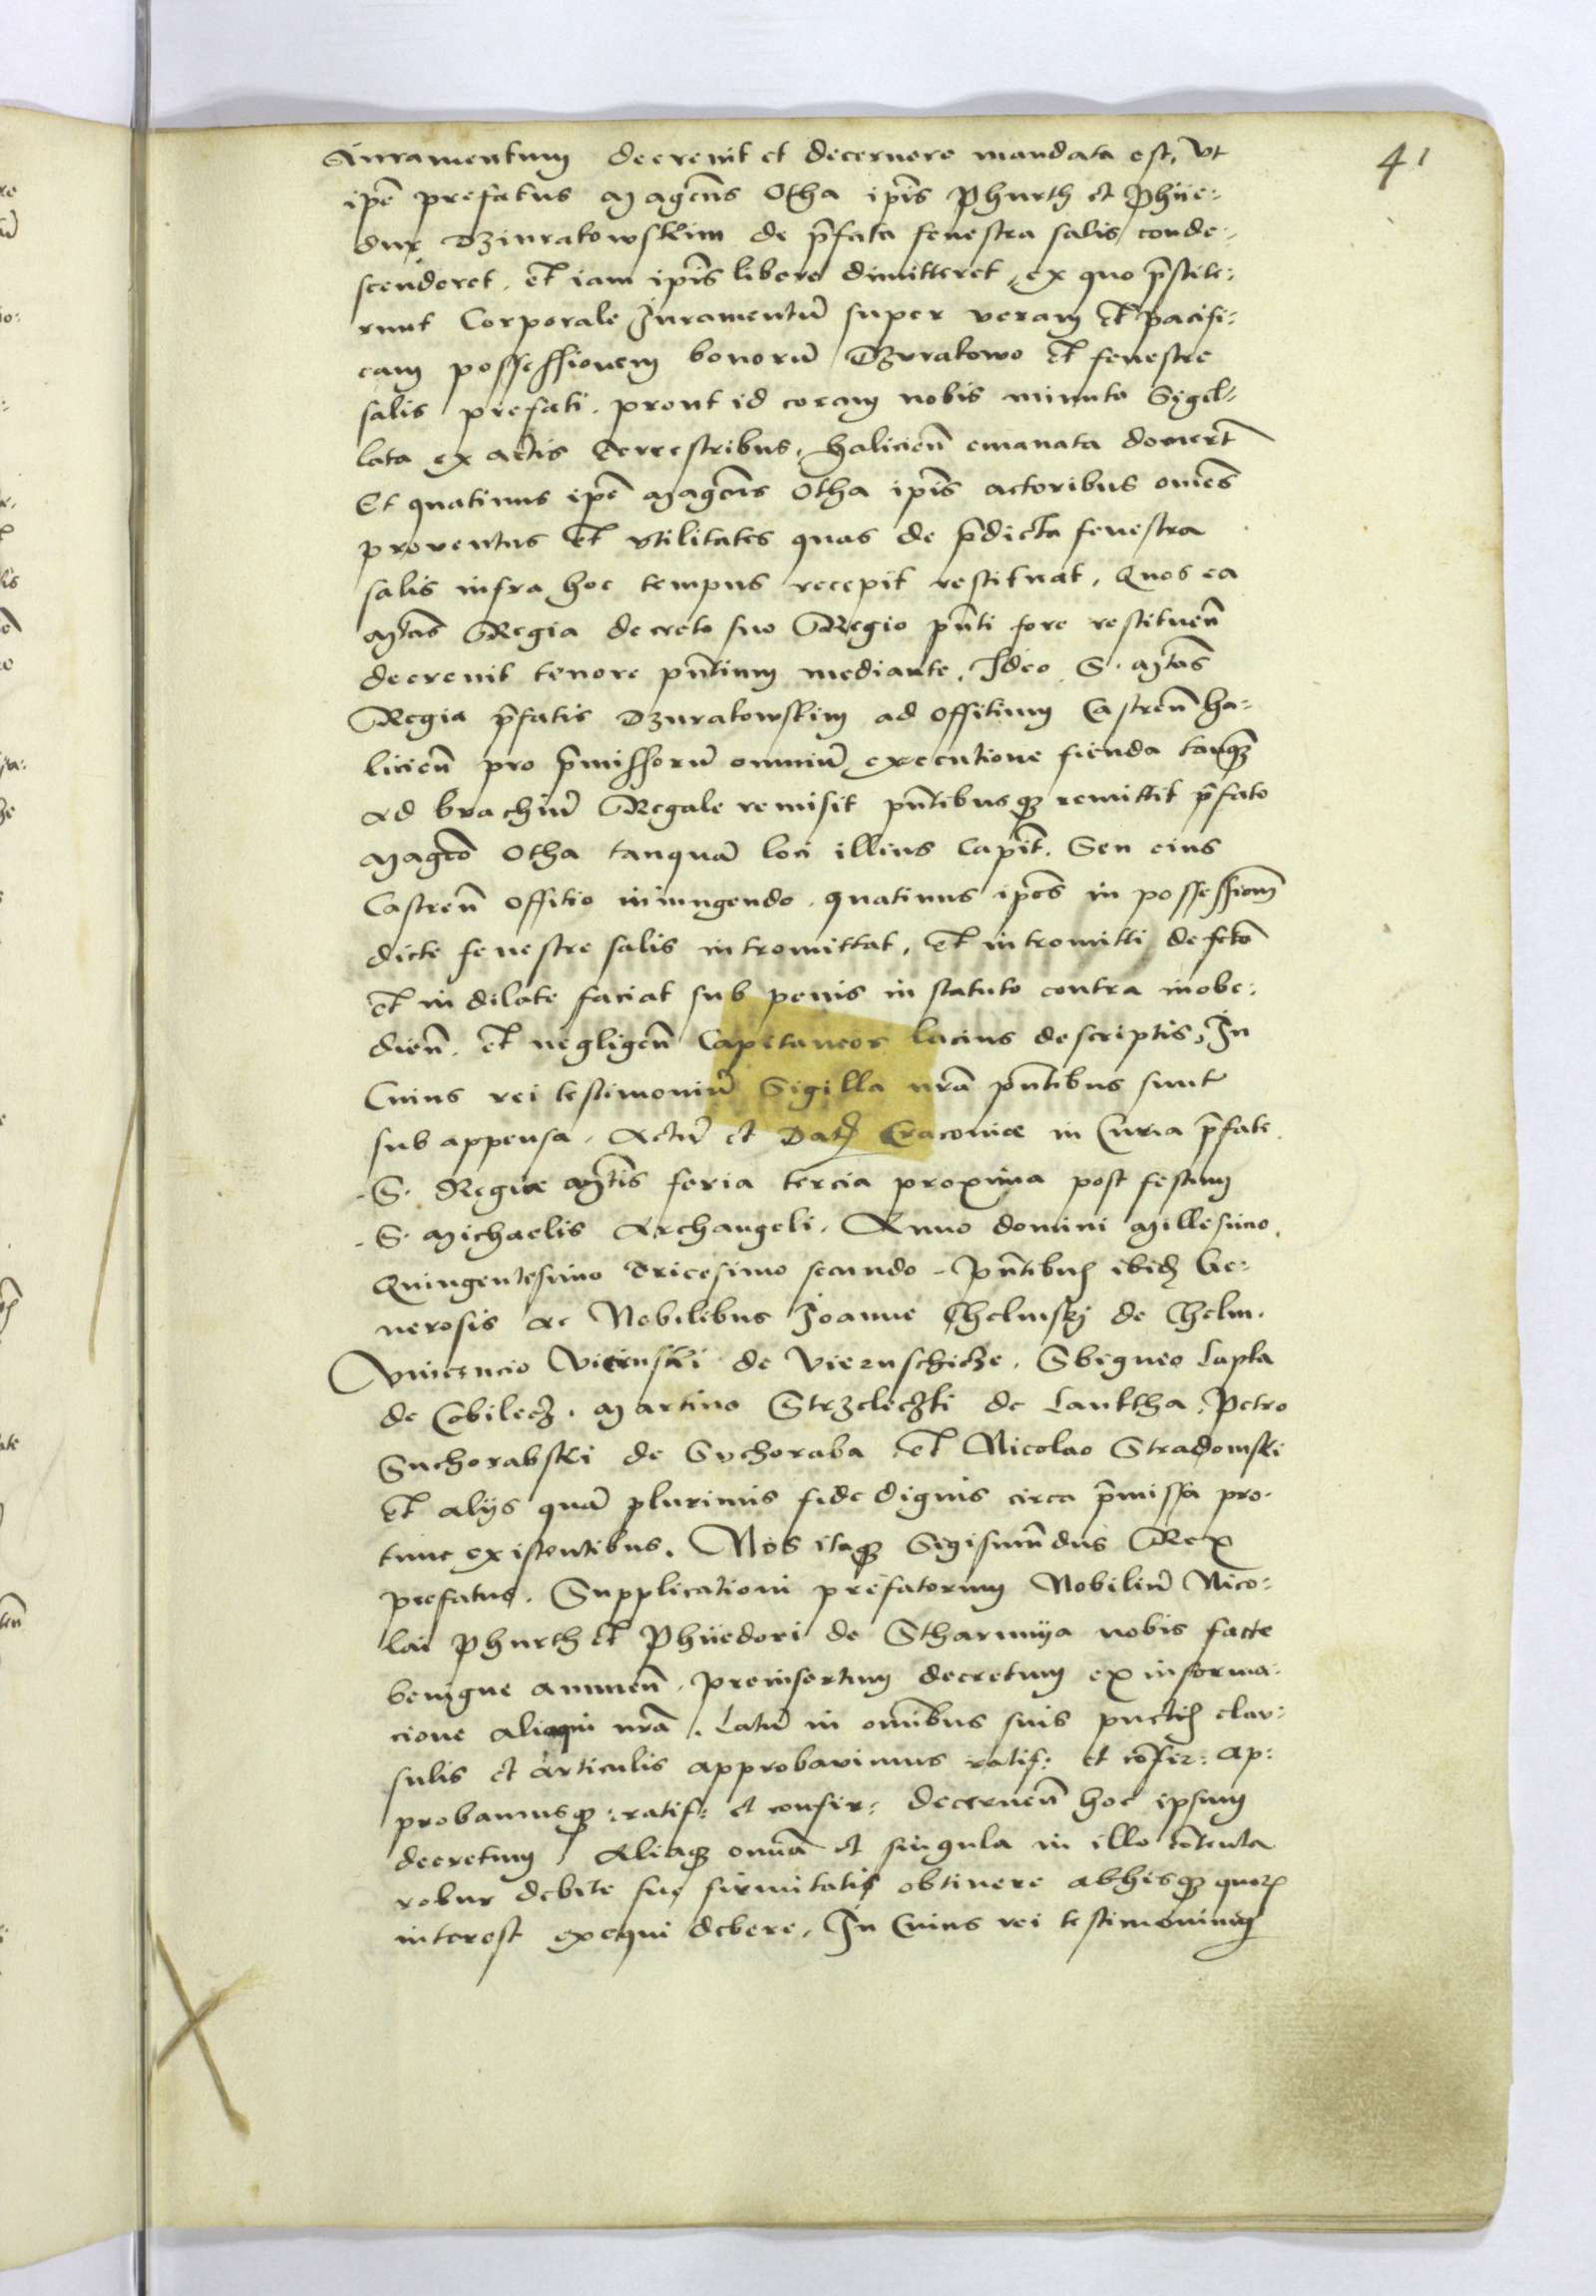 41
Juramentum decrevit et decernere mandata est, vt
ipē prefatus Magcūs Otha ipīs Phurth et Phüe:
dur Dziuratowskim de p̄fata fenestra salis conde:
scenderet, et iam ipīs libere dimitteret, ex quo p̄stite:
runt Corporale Juramentū super veram et pacifi:
cam possessionem bonorū Dzvratowo et fenestre
salis prefati. prout id coram nobis minuta Sigil:
lata ex actis terrestribus, halicieñ emanata docuert
Et quatinus ipē Magcūs Otha ipīs actoribus omēs
proventus et vtilitates quas de p̄dicta fenestra
salis infra hoc tempus recepit restituat, Quos ea
Mtās Regia decreto suo Regio pñti fore restitueñ
decrevit tenore pñtium mediante, Ideo S. Mtās
Regia p̄fatis Dzuratowskim ad offitium Castreñ ha:
licieñ pro p̄missorū omniū executione fienda tanq̄
ad brachiū Regale remisit pñtibusq̄ remittit p̄fato
Magcō Otha tanquā loci illius Capit. Seu eius
Castreñ offitio iniungendo, quatinus ipōs in possessiōm
dicte fenestre salis intromittat, et intromitti de fctō
et indilate faciat sub penis in statuto contra inobe:
dieñ. et negligeñ Capitaneos lacius descriptis, In
Cuius rei testimoniū Sigilla nrā pñtibus sunt
subappensa. Actū et Dat Cracovie in Curia p̄fate
S. Regie Mtīs feria tercia proxima post festum
S. Michaelis Archangeli. Anno domini Millesimo
Quingentesimo Tricesimo secundo. Pñtibus ibid Ge:
nerosis ac Nobilibus Joanne Chelmsky de Chelm.
de Cobilecz. Martino Strzeleczki de Lanktha, Petro
Suchorabski de Svchoraba et Nicolao Stradomski
et alijs quā plurimis fide dignis circa p̄missa pro
tunc existentibus. Nos itaq̄ Sigismūdus Rex
prefatus. Supplicationi prefatorum Nobiliū Nico:
lai Phurth et Phüedori de Stharunya nobis facte
benigne annueñ. preinsertum decretum ex informa:
cione nrā. Latū in omībus suis pnctis clau:
sulis et articulis approbavimus ratif: et cōfir: ap:
probamusq̄: ratif: et confir: decerneñ hoc ipsum
decretum Aliaq̄ omīa et singula in illo cōtenta
robur debite sue firmitatis obtinere abhisq̄ quoꝝ
interest exequi debere, In Cuius rei testimonium